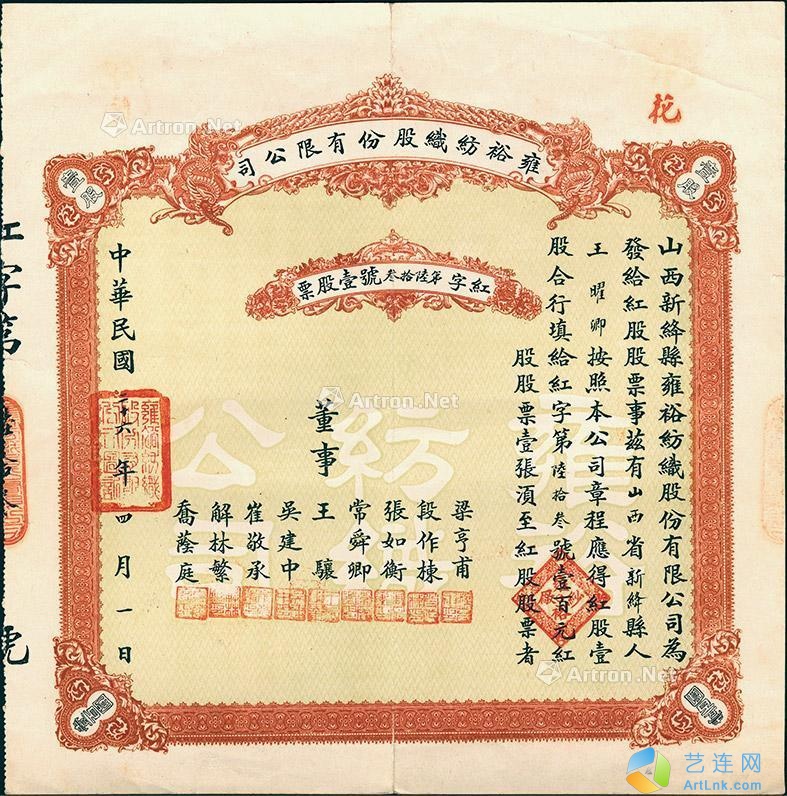 花
雍裕紡織股份有限公司
壹股
壹股
紅字第陸拾叁號壹股票
山西新絳縣雍裕紡織股份有限公司為
發給紅股股票事茲有山西省新絳縣人
王曜卿按照本公司章程應得紅股壹
股合行填給紅字第陸拾叁號壹百元紅
股股票壹張須至紅股股票者
董事
梁亨甫
段作棟
張如衡
常舜卿
王驤
吳建中
崔敬承
解林繁
喬蔭庭
中華民國二十六年四月一日
雍裕紡織公司
紅字第
號
Artron.Net
Artron.Net
Artron.Net
Artron.Net
Artron.Net
艺连网
ArtLnk.com